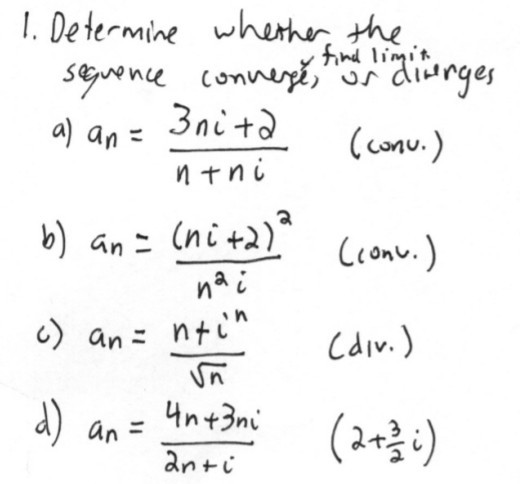 1. Determine whether the
sequence converge, find limit, or diverges
a) an = (3ni+2)/(n+ni) (conv.)
b) an = (ni+2)²/(n²i) (conv.)
c) an = (n+iⁿ)/√n (div.)
d) an = (4n+3ni)/(2n+i) (2+3/2 i)